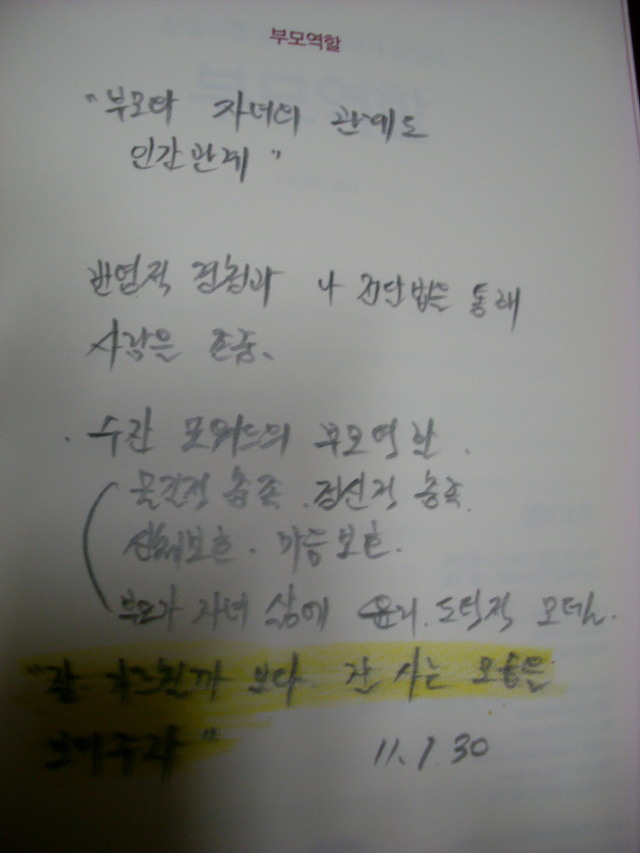 부모역할
"부모와 자녀의 관계도
인간관계"
반영적 경청과 나 전달법을 통해
사람을 존중.
· 수잔 포워드의 부모역할.
물질적 충족. 정신적 충족.
신체보호. 가능보호.
부모가 자녀 삶에 윤리. 도덕적 모델.
"잘 키르칠까 보다. 잘 사는 모습을
보여주자"
11. 7. 30